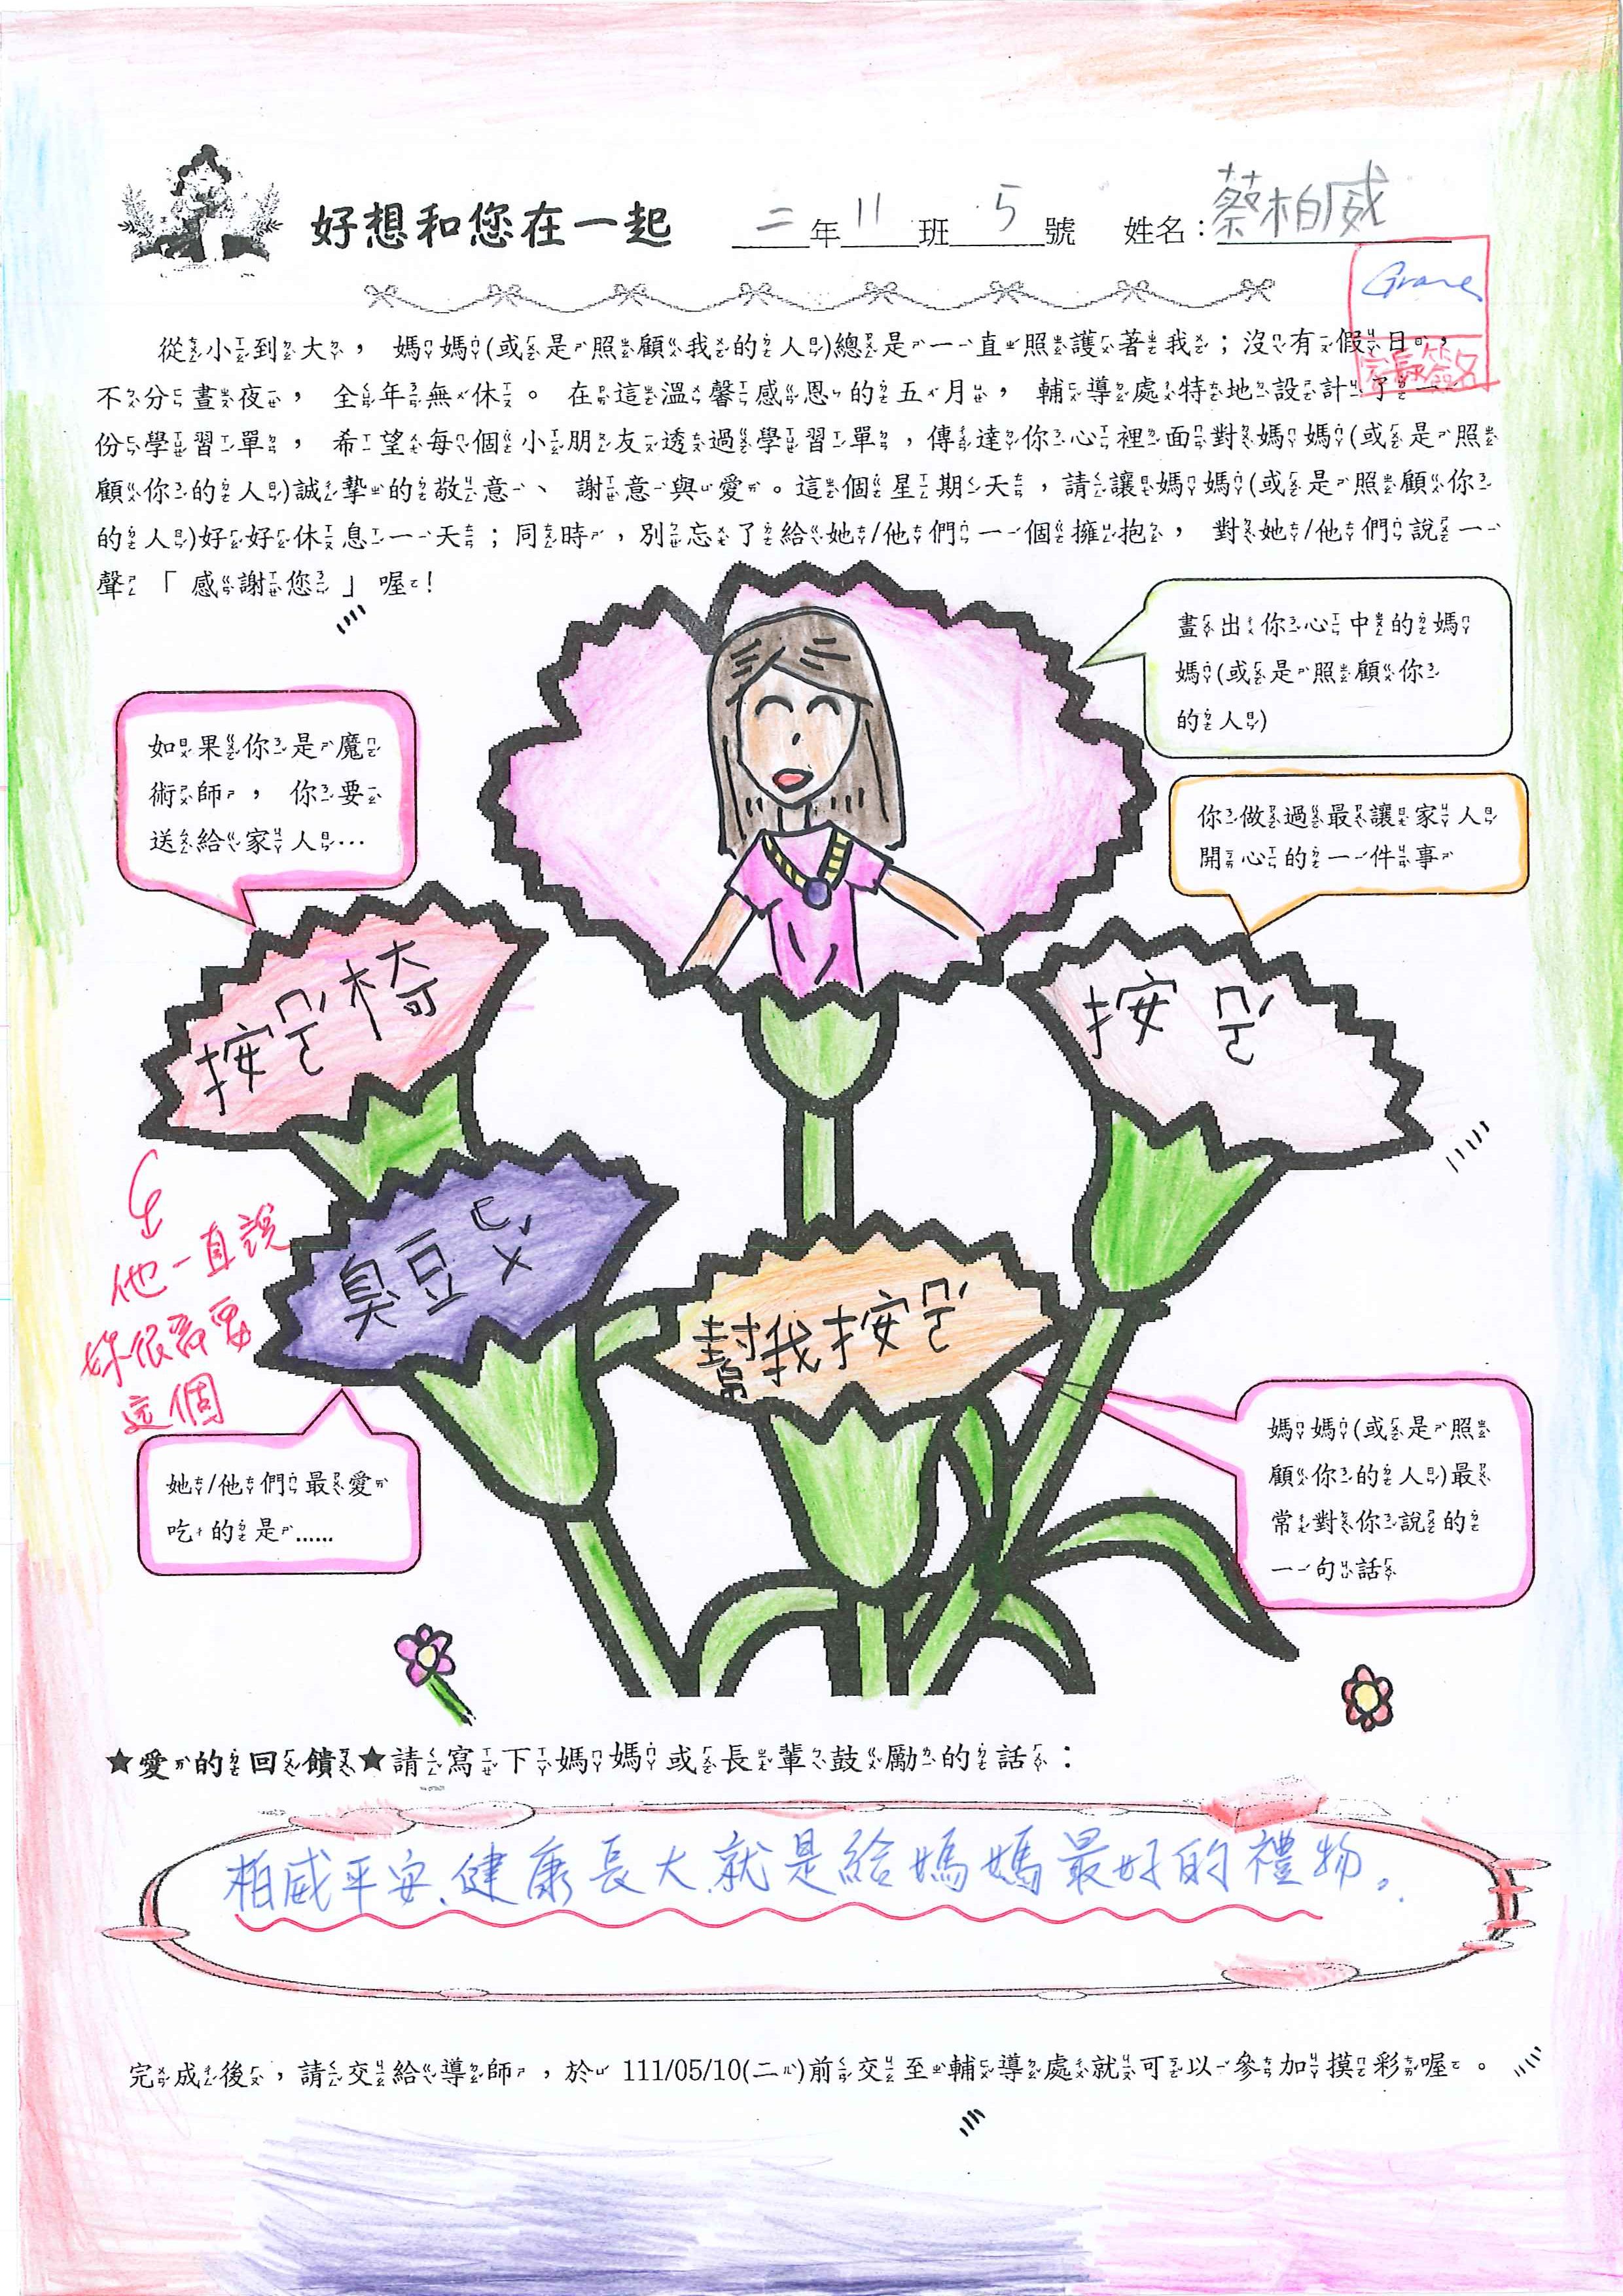 好想和您在一起 二年11班5號 姓名：蔡柏威
Grace
家長簽名
從小到大，媽媽(或是照顧我的人)總是一直照護著我；沒有假日，
不分晝夜，全年無休。在這溫馨感恩的五月，輔導處特地設計了一
份學習單，希望每個小朋友透過學習單，傳達你心裡面對媽媽(或是照
顧你的人)誠摯的敬意、謝意與愛。這個星期天，請讓媽媽(或是照顧你
的人)好好休息一天；同時，別忘了給她/他們一個擁抱，對她/他們說一
聲「感謝您」喔！
畫出你心中的媽
媽(或是照顧你
的人)
如果你是魔
術師，你要
送給家人…
你做過最讓家人
開心的一件事
按ㄇㄛˊ椅
按ㄇㄛˊ
他一直說
妳很需要
這個
臭豆ㄈㄨˇ
幫我按ㄇㄛˊ
她/他們最愛
吃的是……
媽媽(或是照
顧你的人)最
常對你說的
一句話
★愛的回饋★請寫下媽媽或長輩鼓勵的話：
柏威平安、健康長大、就是給媽媽最好的禮物。
完成後，請交給導師，於 111/05/10(二)前交至輔導處就可以參加摸彩喔。